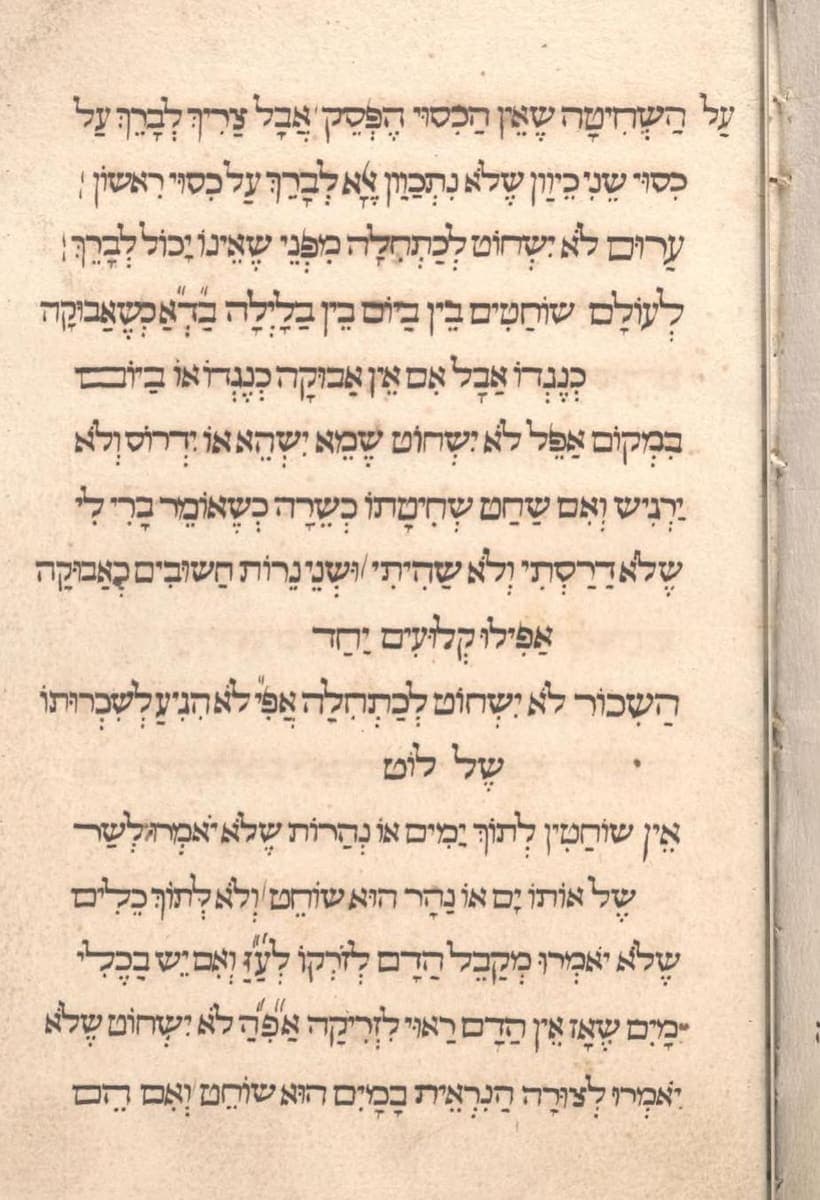 עַל הַשְּׁחִיטָה שֶׁאֵין הַכִּסּוּי הֶפְסֵק׳ אֲבָל צָרִיךְ לְבָרֵךְ עַל
כִּסּוּי שֵׁנִי כֵּיוָן שֶׁלֹּא נִתְכַּוֵּון אֶלָּא לְבָרֵךְ עַל כִּסּוּי רִאשׁוֹן׃
עָרוּם לֹא יִשְׁחוֹט לְכַתְּחִלָּה מִפְּנֵי שֶׁאֵינוֹ יָכוֹל לְבָרֵךְ׃
לְעוֹלָם שׁוֹחֲטִים בֵּין בַּיּוֹם בֵּין בַּלַּיְלָה בַּ״דְ״אַ כְּשֶׁאֲבוּקָה
כְּנֶגְדּוֹ אֲבָל אִם אֵין אֲבוּקָה כְּנֶגְדּוֹ אוֹ בַּיּוֹם
בִּמְקוֹם אַפֵל לֹא יִשְׁחוֹט שֶׁמֵּא יִשְׁהֵא אוֹ יִדְרוֹס וְלֹא
יַרְגִּישׁ וְאִם שָׁחַט שְׁחִיטָתוֹ כְּשֵׁרָה כְּשֶׁאוֹמֵר בָּרִי לִי
שֶׁלֹּא דָּרַסְתִּי וְלֹא שָׁהִיתִי׳ וּשְׁנֵי נֵרוֹת חֲשׁוּבִים כַּאֲבוּקָה
אֲפִילּוּ קְלוּעִים יַחַד
הַשִּׁכּוֹר לֹא יִשְׁחוֹט לְכַתְּחִלָּה אֲפִי״ לֹא הִגִּיעַ לְשִׁכְרוּתוֹ
שֶׁל לוֹט
אֵין שׁוֹחֲטִין לְתוֹךְ יַמִּים אוֹ נְהָרוֹת שֶׁלֹּא יֹאמְרוּ לְשַׂר
שֶׁל אוֹתוֹ יָם אוֹ נָהָר הוּא שׁוֹחֵט׳ וְלֹא לְתוֹךְ כֵּלִים
שֶׁלֹּא יֹאמְרוּ מְקַבֵּל הַדָּם לְזֹרְקוֹ לְעַ״זַ וְאִם יֵשׁ בַּכֶּלִי
מַיִם שֶׁאָז אֵין הַדָּם רָאוּי לִזְרִיקָה אַ״פִ״הַ לֹא יִשְׁחוֹט שֶׁלֹּא
יֹאמְרוּ לְצוּרָה הַנִּרְאֵית בַּמַּיִם הוּא שׁוֹחֵט וְאִם הֵם